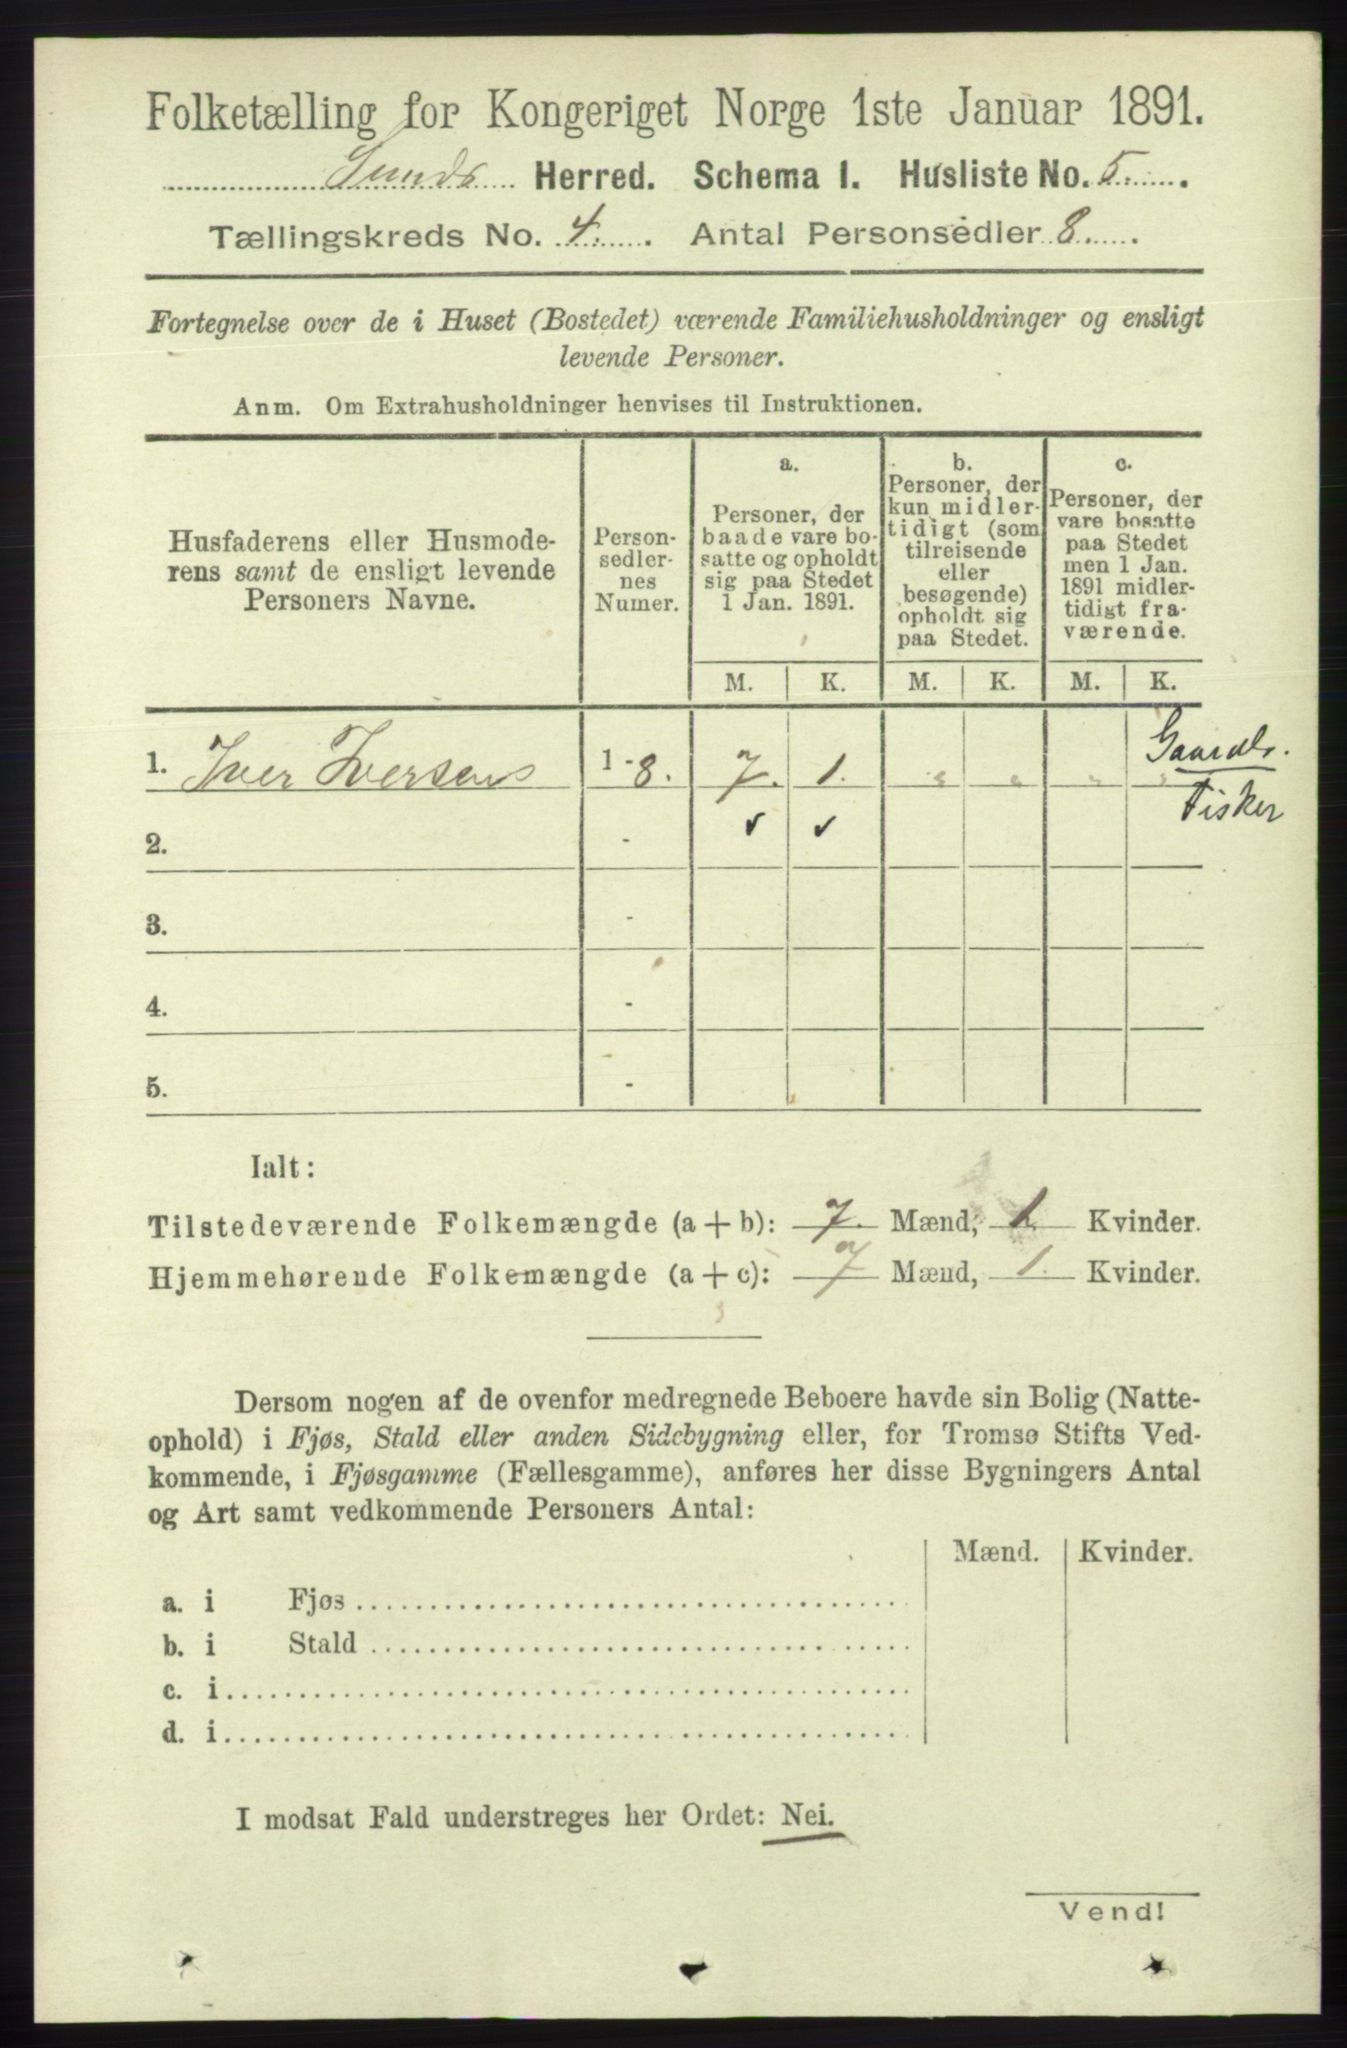 Folketælling for Kongeriget Norge 1ste Januar 1891.
Sunds Herred. Schema I. Husliste No. 5.
Tællingskreds No. 4. Antal Personsedler 8.
Fortegnelse over de i Huset (Bostedet) værende Familiehusholdninger og ensligt
levende Personer.
Anm. Om Extrahusholdninger henvises til Instruktionen.
Husfaderens eller Husmode-
rens samt de ensligt levende
Personers Navne.
Person-
sedler-
nes
Numer.
a.
Personer, der
baade vare bo-
satte og opholdt
sig paa Stedet
1 Jan. 1891.
b.
Personer, der
kun midler-
tidigt (som
tilreisende
eller
besøgende)
opholdt sig
paa Stedet.
c.
Personer, der
vare bosatte
paa Stedet
men 1 Jan.
1891 midler-
tidigt fra-
værende.
M. K. M. K. M. K.
1. Iver Iversen 1 - 8. 7. 1. " " " " Gaardb.
Fisker
2. - ✓ ✓
3. -
4. -
5. -
Ialt:
Tilstedeværende Folkemængde (a + b): 7. Mænd, 1. Kvinder.
Hjemmehørende Folkemængde (a + c): 7 Mænd, 1. Kvinder.
Dersom nogen af de ovenfor medregnede Beboere havde sin Bolig (Natte-
ophold) i Fjøs, Stald eller anden Sidebygning eller, for Tromsø Stifts Ved-
kommende, i Fjøsgamme (Fællesgamme), anføres her disse Bygningers Antal
og Art samt vedkommende Personers Antal:
Mænd. Kvinder.
a. i Fjøs
b. i Stald
c. i
d. i
I modsat Fald understreges her Ordet: Nei.
Vend!